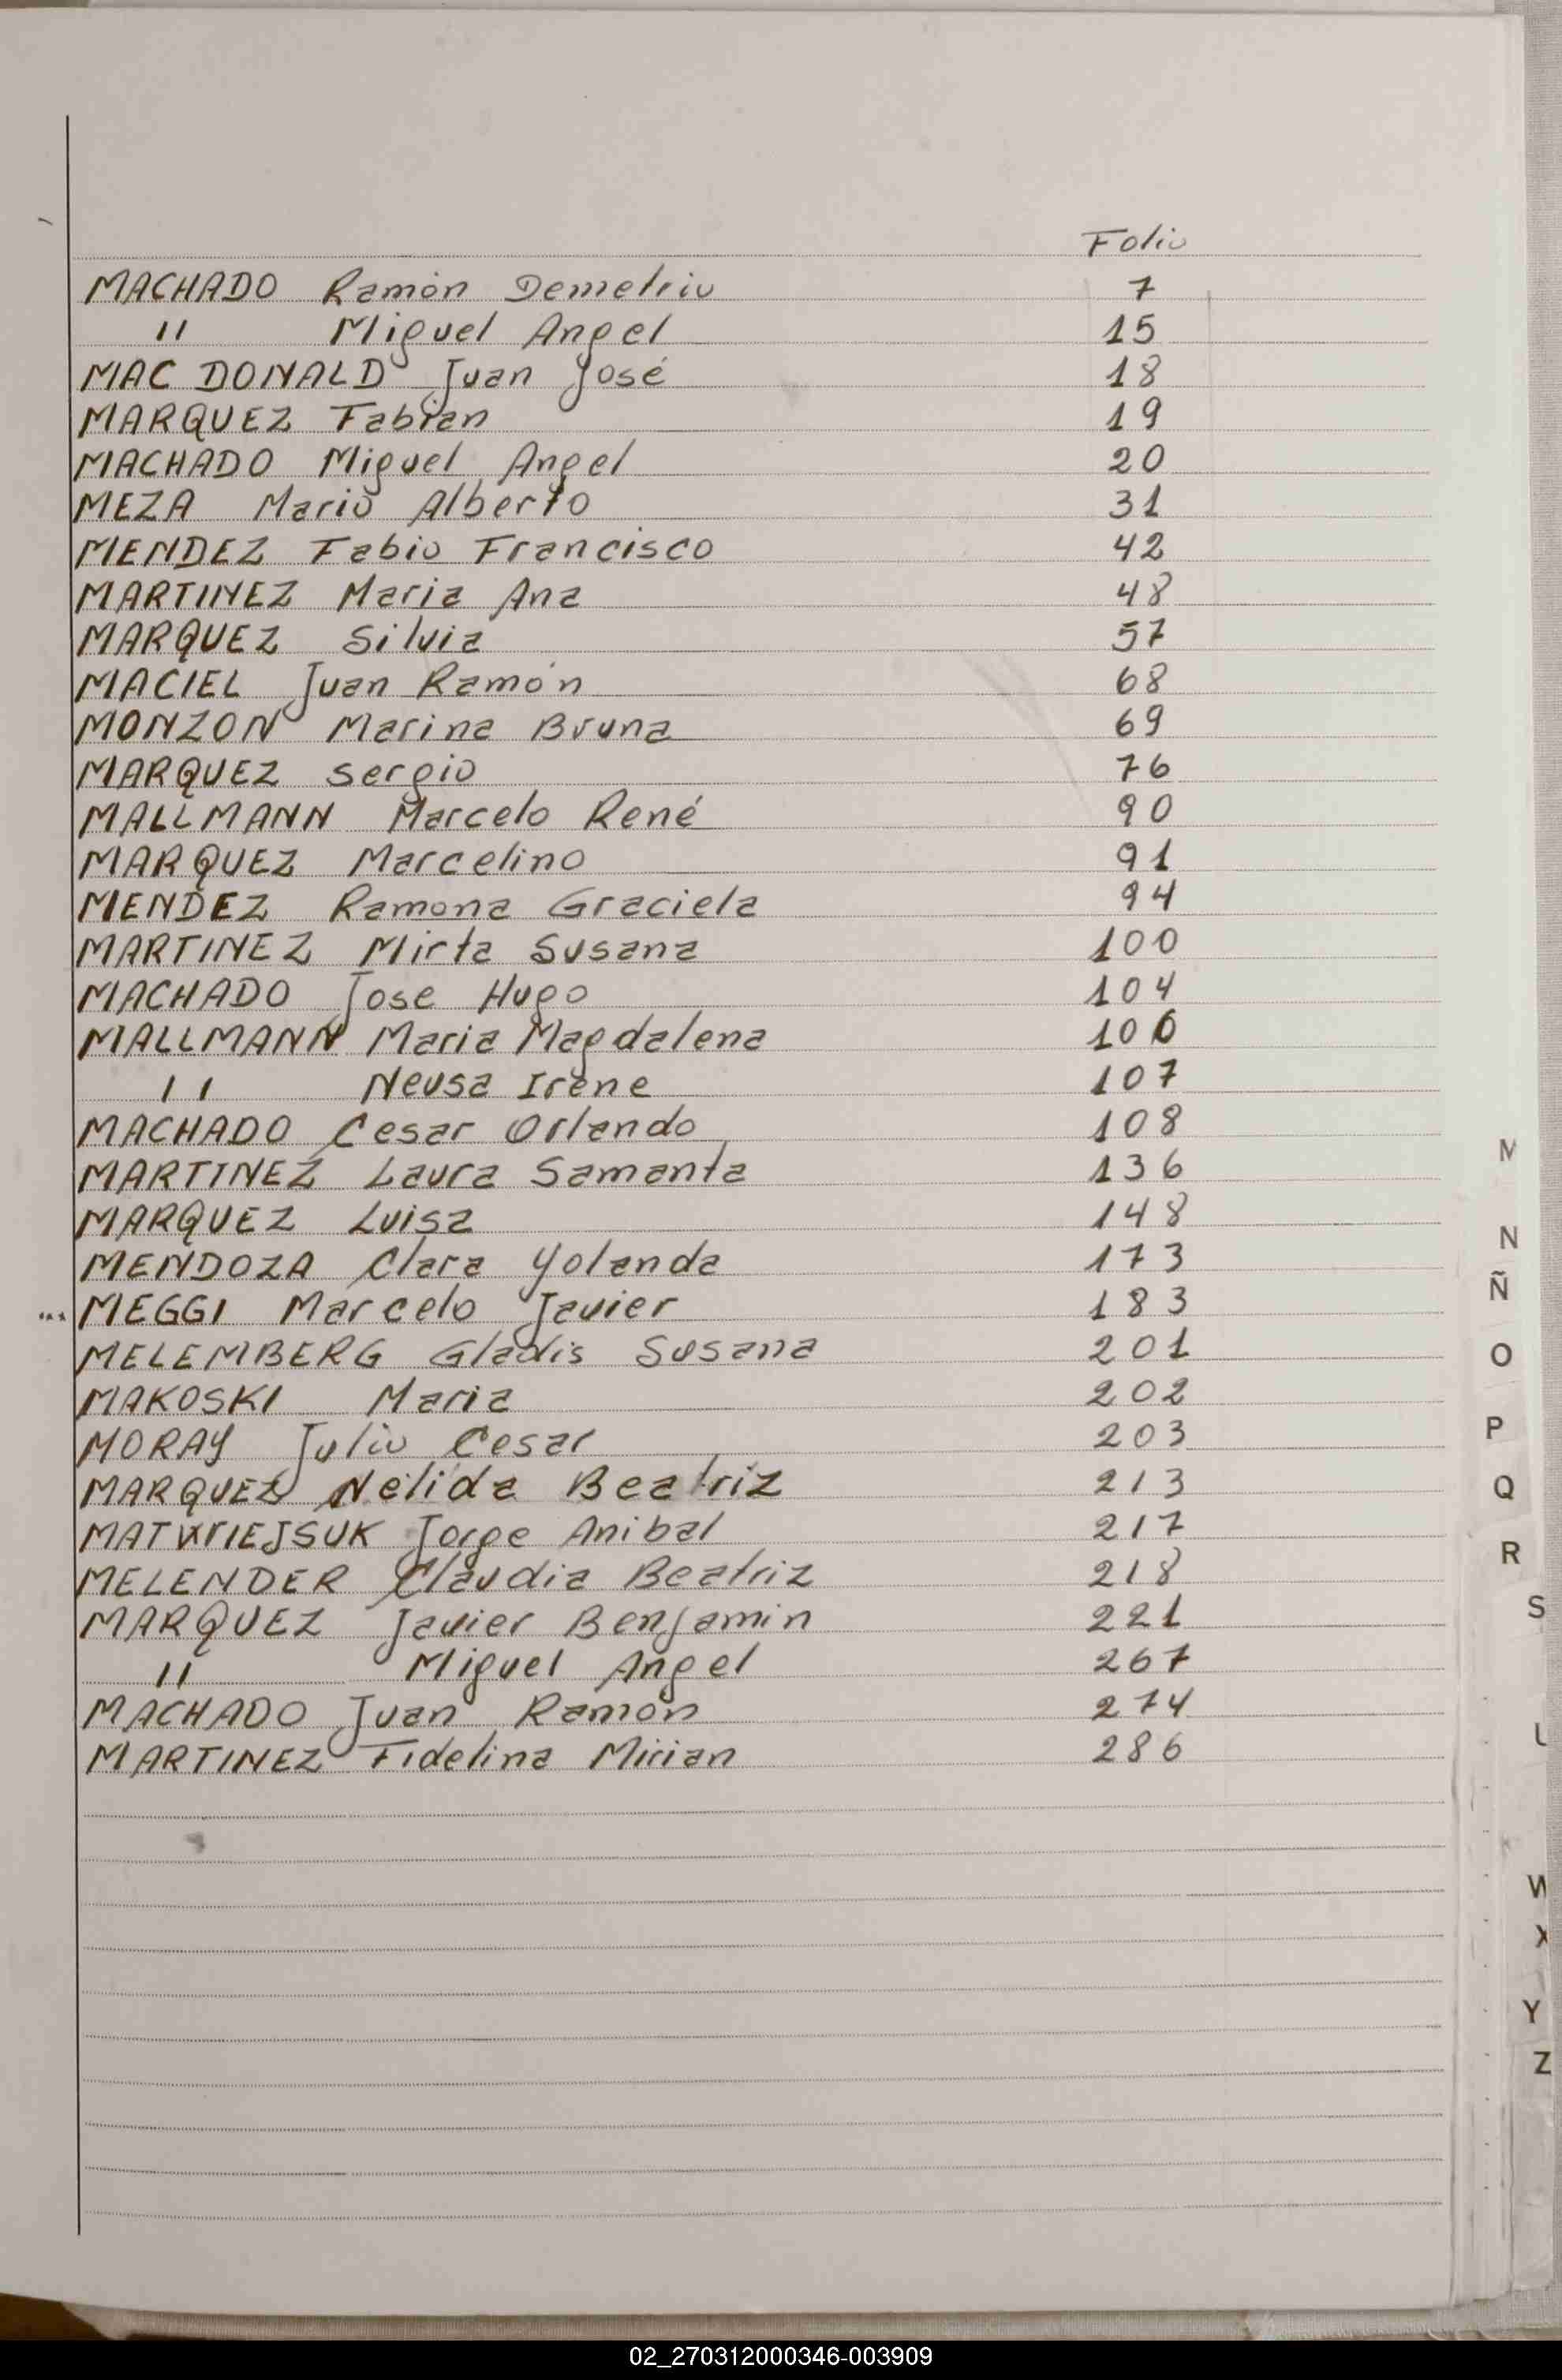 Folio
MACHADO Ramón Demetrio 7
" Miguel Angel 15
MAC DONALD Juan José 18
MARQUEZ Fabian 19
MACHADO Miguel Angel 20
MEZA Mario Alberto 31
MENDEZ Fabio Francisco 42
MARTINEZ Maria Ana 48
MARQUEZ Silvia 57
MACIEL Juan Ramón 68
MONZON Marina Bruna 69
MARQUEZ Sergio 76
MALLMANN Marcelo René 90
MARQUEZ Marcelino 91
MENDEZ Ramona Graciela 94
MARTINEZ Mirta Susana 100
MACHADO Jose Hugo 104
MALLMANN Maria Magdalena 106
" Neusa Irene 107
MACHADO Cesar Orlando 108
MARTINEZ Laura Samanta 136
MARQUEZ Luisa 148
MENDOZA Clara Yolanda 173
MEGGI Marcelo Javier 183
MELEMBERG Gladis Susana 201
MAKOSKI Maria 202
MORAY Julio Cesar 203
MARQUEZ Nélida Beatriz 213
Jorge Anibal 217
MELENDER Claudia Beatriz 218
MARQUEZ Javier Benjamin 221
" Miguel Angel 267
MACHADO Juan Ramón 274
MARTINEZ Fidelina Mirian 286
M
N
Ñ
O
P
Q
R
S
U
W
X
Y
Z
02_270312000346-003909